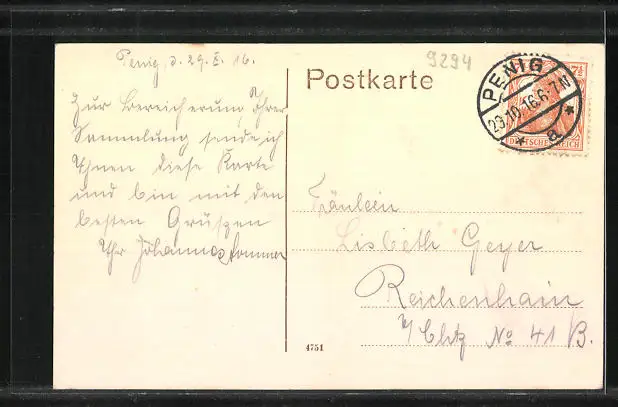 Penig, d. 29. X. 16.
9294
Postkarte
7½
PENIG
29.10.16.6-7N
* a *
DEUTSCHES REICH
Zur Bereicherung Ihrer
Sammlung sende ich
Ihnen diese Karte
und bin mit den
besten Grüszen
Ihr Johannes Sommer
Fräulein
Lisbeth Geyer
Reichenhain
b/ Chtz No 41 B.
4751